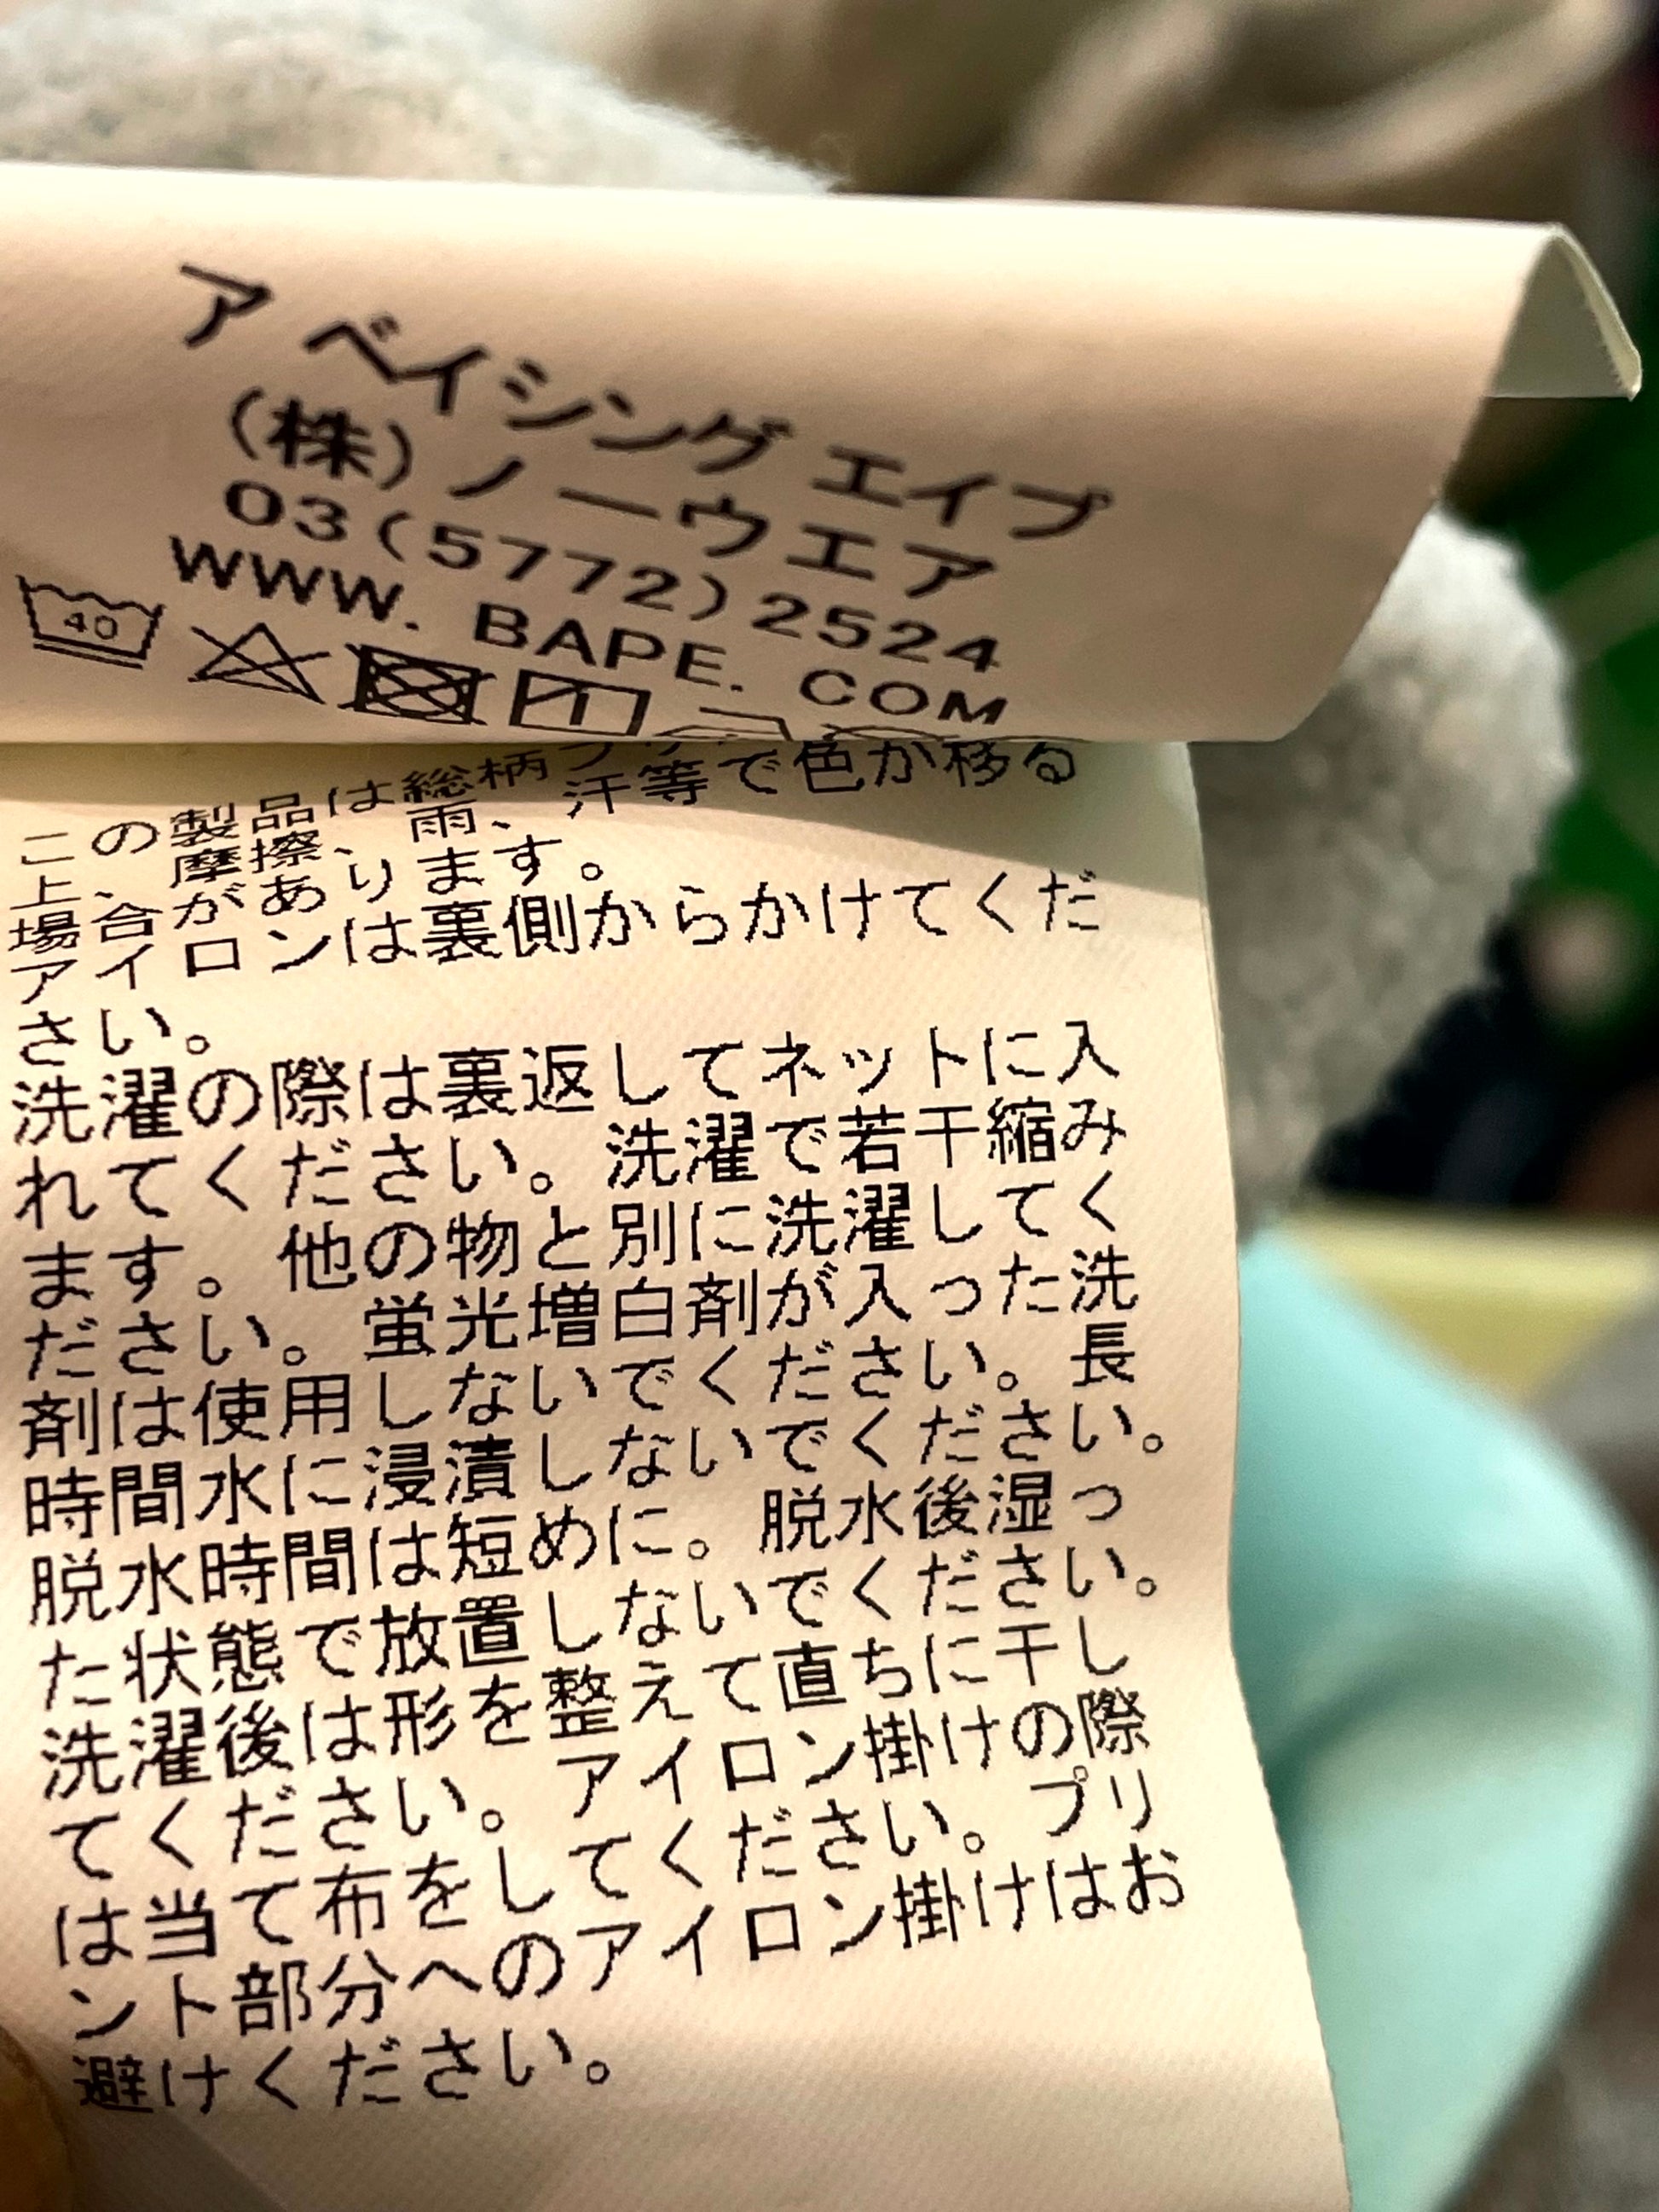 ア ベイシング エイプ
(株)ノーウエア
03(5772)2524
WWW. BAPE. COM
40
この製品は総柄
上、摩擦、雨、汗等で色が移る
場合があります。
アイロンは裏側からかけてくだ
さい。
洗濯の際は裏返してネットに入
れてください。洗濯で若干縮み
ます。他の物と別に洗濯してく
ださい。蛍光増白剤が入った洗
剤は使用しないでください。長
時間水に浸漬しないでください。
脱水時間は短めに。脱水後湿っ
た状態で放置しないでください。
洗濯後は形を整えて直ちに干し
てください。アイロン掛けの際
は当て布をしてください。プリ
ント部分へのアイロン掛けはお
避けください。